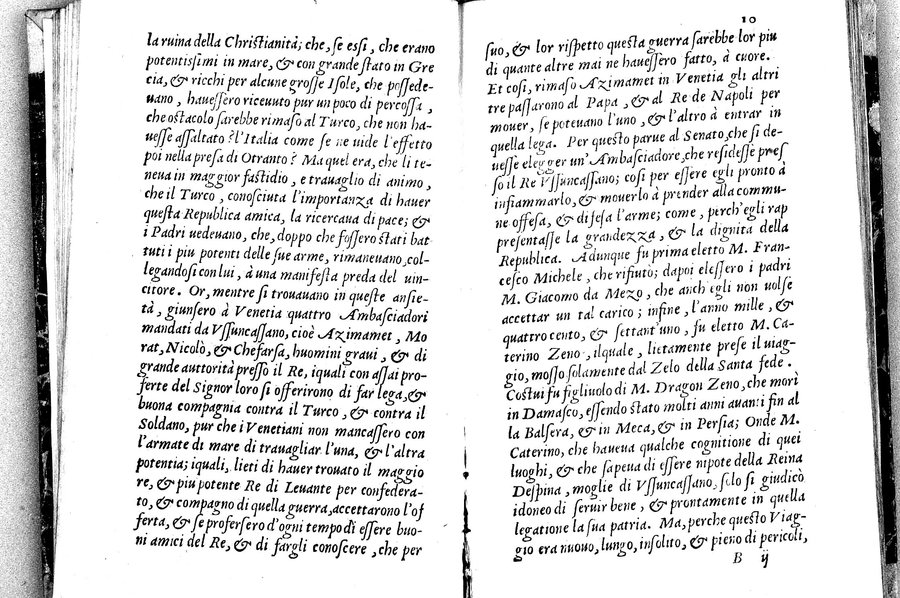 la ruina della Christianità; che, se essi, che erano
potentissimi in mare, & con grande stato in Gre
cia, & ricchi per alcune grosse Isole, che possede-
uano, hauessero riceuuto pur un poco di percossa,
che ostacolo sarebbe rimaso al Turco, che non ha-
uesse assaltato? l'Italia come se ne uide l'effetto
poi nella presa di Otranto? Ma quel era, che li te-
neua in maggior fastidio, e trauaglio di animo,
che il Turco, conosciuta l'importanza di hauer
questa Republica amica, la ricercana di pace; &
i Padri uedeuano, che, doppo che fossero stati bat
tuti i piu potenti delle sue arme, rimaneuano, col-
legandosi con lui, à una manifesta preda del uin-
citore. Or, mentre si trouauano in queste ansie-
tà, giunsero à Venetia quattro Ambasciadori
mandati da Vssuncassano, cioè Azimamet, Mo
rat, Nicolò, & Chefarsa, huomini graui, & di
grande auttorità presso il Re, iquali con assai pro-
ferte del Signor loro si offerirono di far lega, &
buona compagnia contra il Turco, & contra il
Soldano, pur che i Venetiani non mancassero con
l'armate di mare di trauagliar l'una, & l'altra
potentia; iquali, lieti di hauer trouato il maggio
re, & piu potente Re di Leuante per confedera-
to, & compagno di quella guerra, accettarono l'of
ferta, & se profersero d'ogni tempo di essere buo-
ni amici del Re, & di fargli conoscere, che per
10
suo, & lor rispetto questa guerra sarebbe lor piu
di quante altre mai ne hauessero fatto, à cuore.
Et cosi, rimaso Azimamet in Venetia gli altri
tre passarono al Papa, & al Re de Napoli per
mouer, se poteuano l'uno, & l'altro à entrar in
quella lega. Per questo parue al Senato, che si de-
uesse elegger un' Ambasciadore, che residesse pres
so il Re Vssuncassano; cosi per essere egli pronto à
infiammarlo, & mouerlo à prender alla commu-
ne offesa, & difesa l'arme; come, perch'egli rap
presentasse la grandezza, & la dignità della
Republica. Adunque fu prima eletto M. Fran-
cesco Michele, che rifiutò; dapoi elessero i padri
M. Giacomo da Mezo, che anch'egli non uolse
accettar un tal carico; infine, l'anno mille, &
quattro cento, & settant'uno, fu eletto M. Ca-
terino Zeno, ilquale, lietamente prese il uiag-
gio, mosso solamente dal Zelo della Santa fede.
Costui fu figliuolo di M. Dragon Zeno, che morì
in Damasco, essendo stato molti anni auanti fin al
la Balsera, & in Meca, & in Persia; Onde M.
Caterino, che haueua qualche cognitione di quei
luoghi, & che sapeua di essere nipote della Reina
Despina, moglie di Vssuncassano, solo si giudicò
idoneo di seruir bene, & prontamente in quella
legatione la sua patria. Ma, perche questo Viag-
gio era nuouo, lungo, insolito, & pieno di pericoli,
B ij